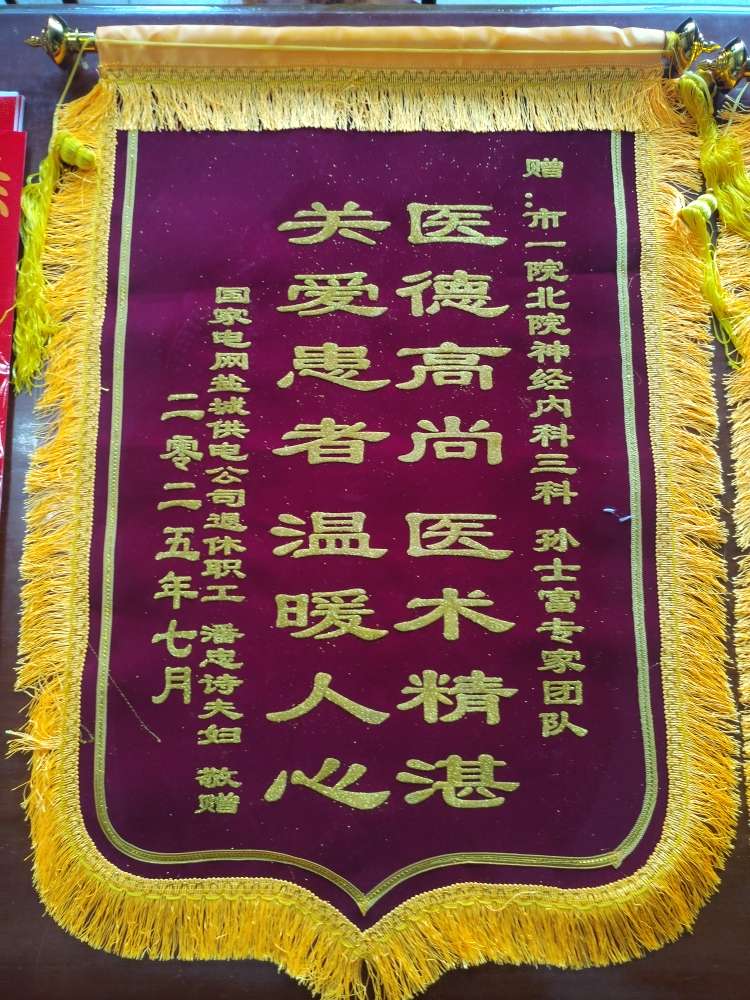 赠：市一院北院神经内科三科 孙士富专家团队
医德高尚 医术精湛
关爱患者 温暖人心
国家电网盐城供电公司退休职工 潘忠诗夫妇 敬赠
二零二五年七月